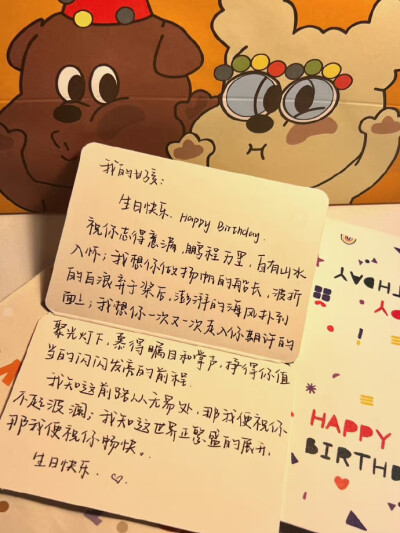 我的女孩：
生日快乐、Happy Birthday.
祝你志得意满，鹏程万里，自有山水
入怀；我想你做扬帆的船长，波折
的白浪弃于桨后，澎湃的海风扑到
面上；我想你一次又一次走入你期许的
聚光灯下，赢得瞩目和掌声，挣得你值
当的闪闪发亮的前程。
我知这前路从无易处，那我便祝你
不起波澜；我知这世界正繁盛的展开，
那我便祝你畅快。
生日快乐. ♡
HAPPY
BIRTHD